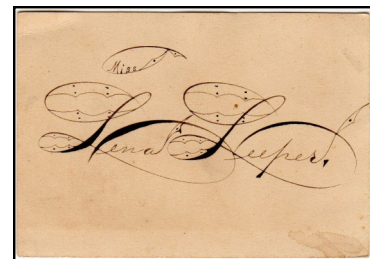 Miss
Lena Leeper.